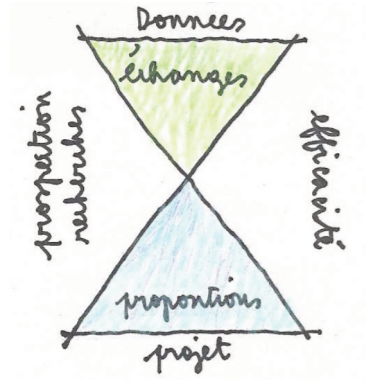 Donnees
échanges
prospection
recherches
efficacité
proportions
projet